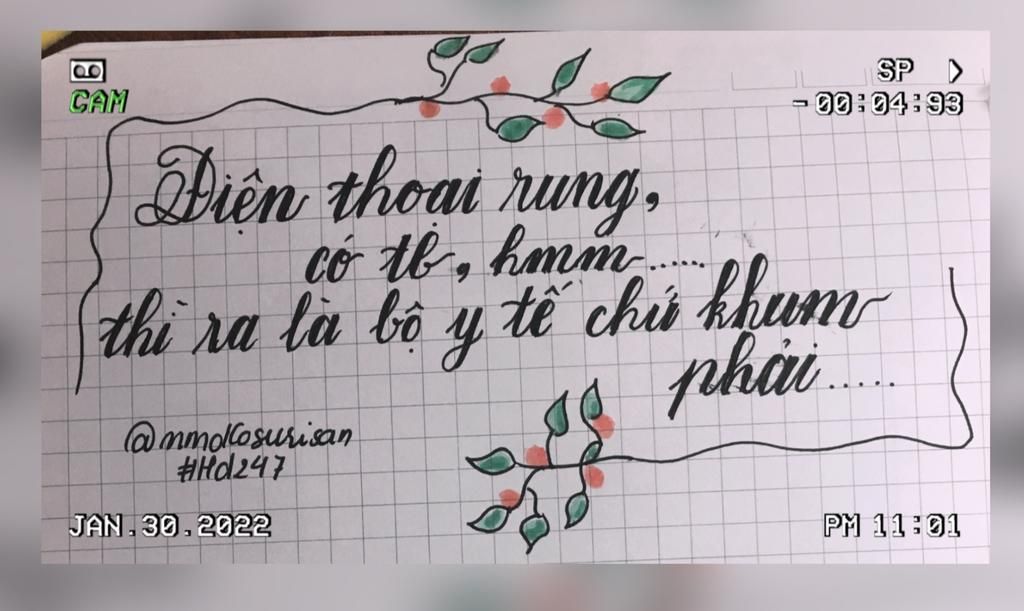 CAM
SP
-00:04:93
Điện thoại rung,
có tb, hmm......
thì ra là bộ y tế chứ khum
phải.....
#Hd247
JAN.30.2022
PM 11:01